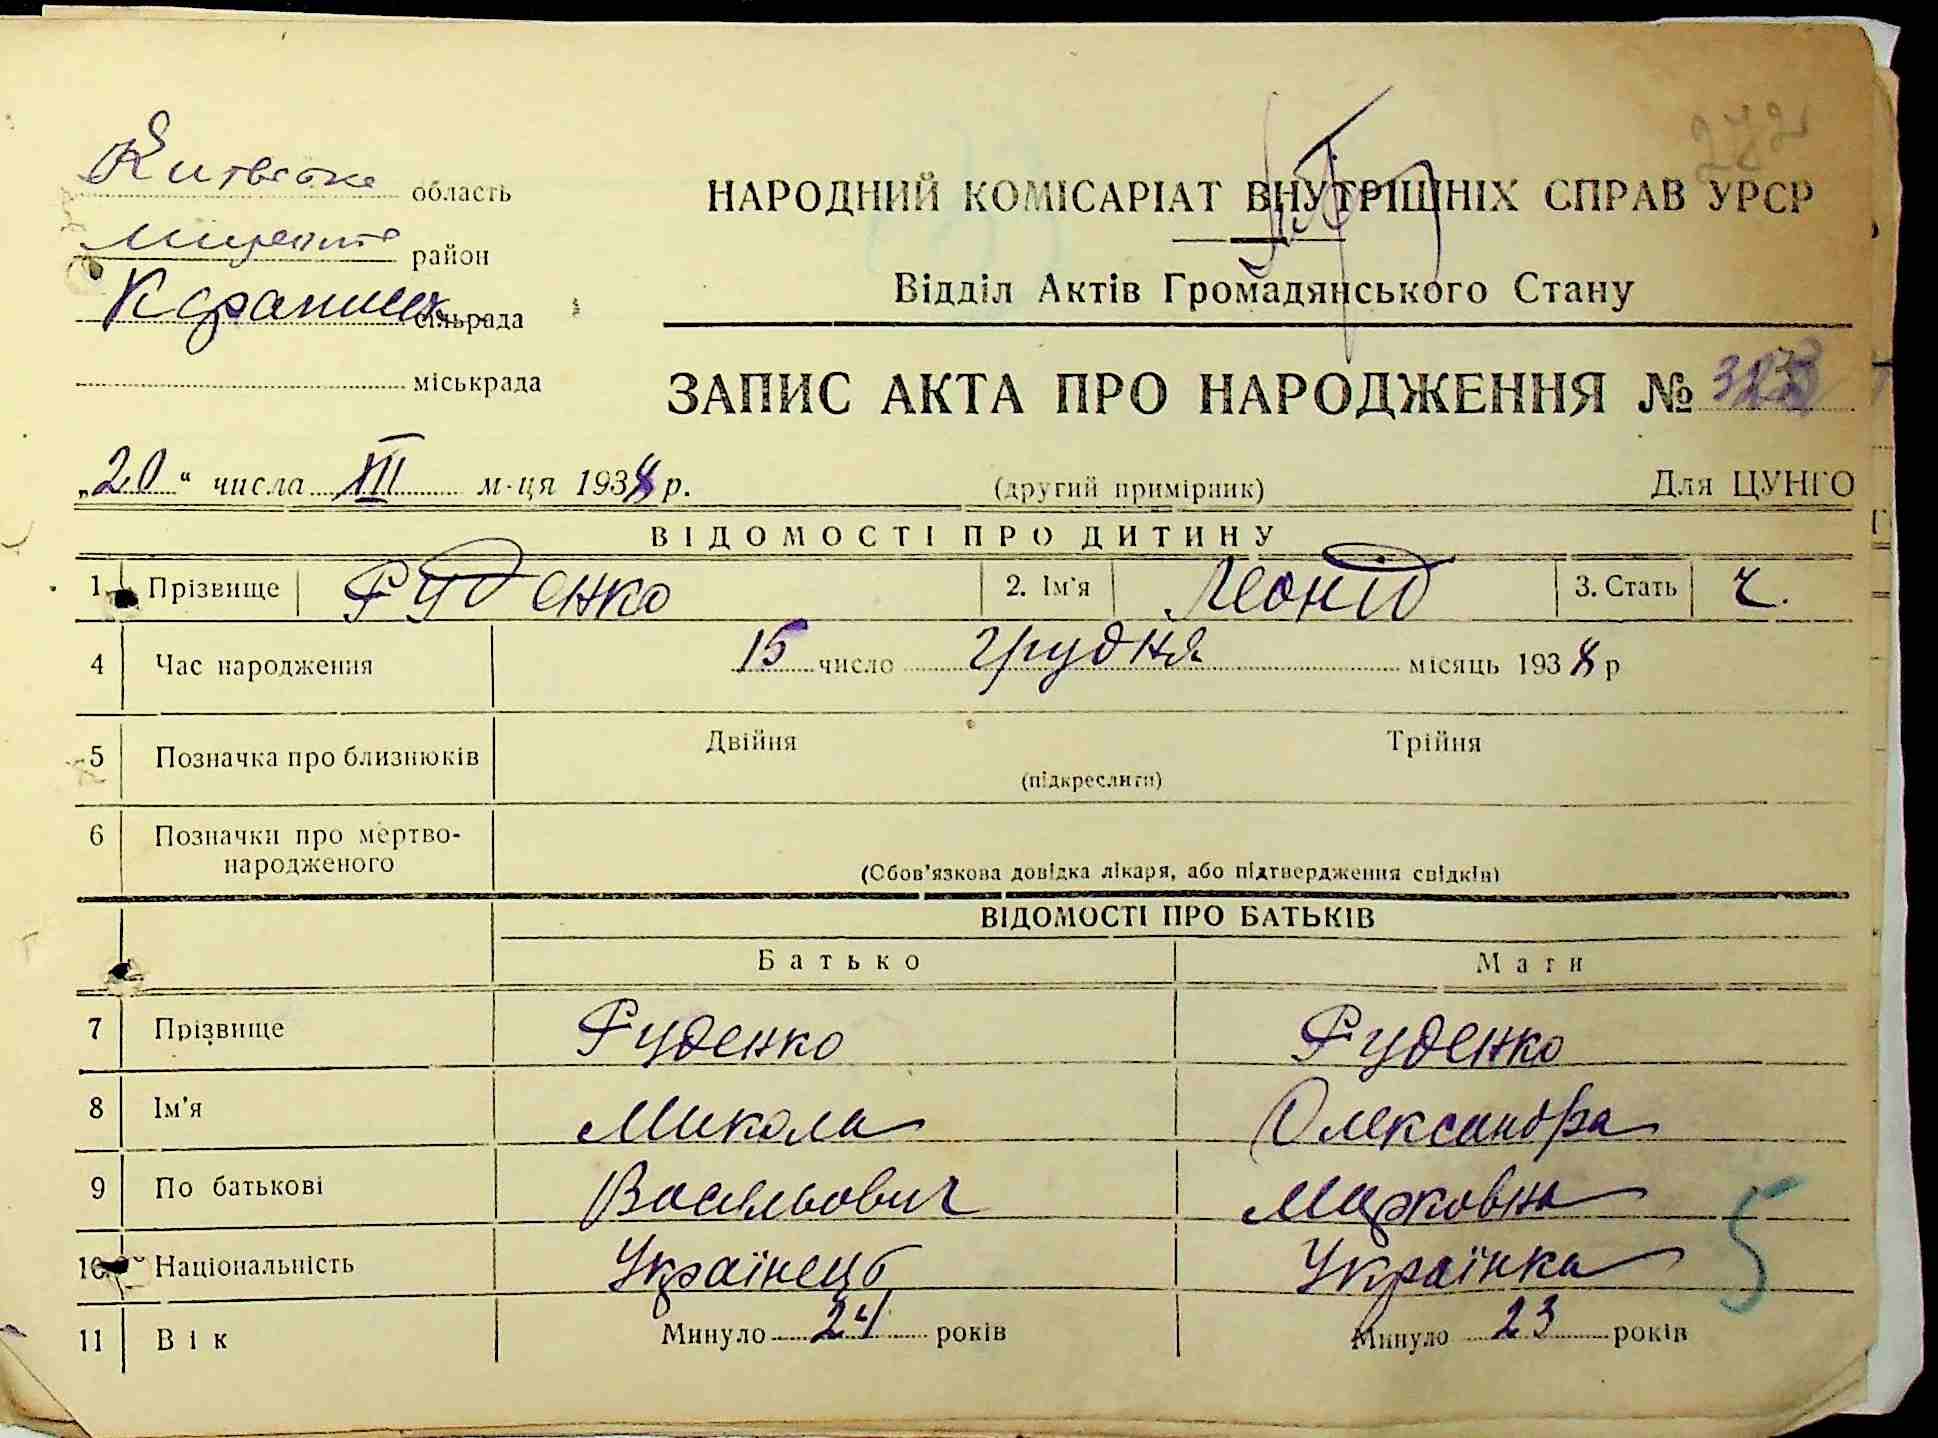 Київська область
район
сільрада
міськрада
272
НАРОДНИЙ КОМІСАРІАТ ВНУТРІШНІХ СПРАВ УРСР
Відділ Актів Громадянського Стану
ЗАПИС АКТА ПРО НАРОДЖЕННЯ №
„20“ числа XII м-ця 1938 р.
(другий примірник)
Для ЦУНГО
ВІДОМОСТІ ПРО ДИТИНУ
1 Прізвище Руденко 2. Ім'я Леонід 3. Стать ч.
4 Час народження 15 число грудня місяць 1938 р
5 Позначка про близнюків Двійня Трійня
(підкреслити)
6 Позначки про мертво-
народженого
(Обов'язкова довідка лікаря, або підтвердження свідків)
ВІДОМОСТІ ПРО БАТЬКІВ
Батько Мати
7 Прізвище Руденко Руденко
8 Ім'я Микола Олександра
9 По батькові Васильович Марковна
10 Національність Українець Українка
5
11 Вік Минуло 24 років Минуло 23 років